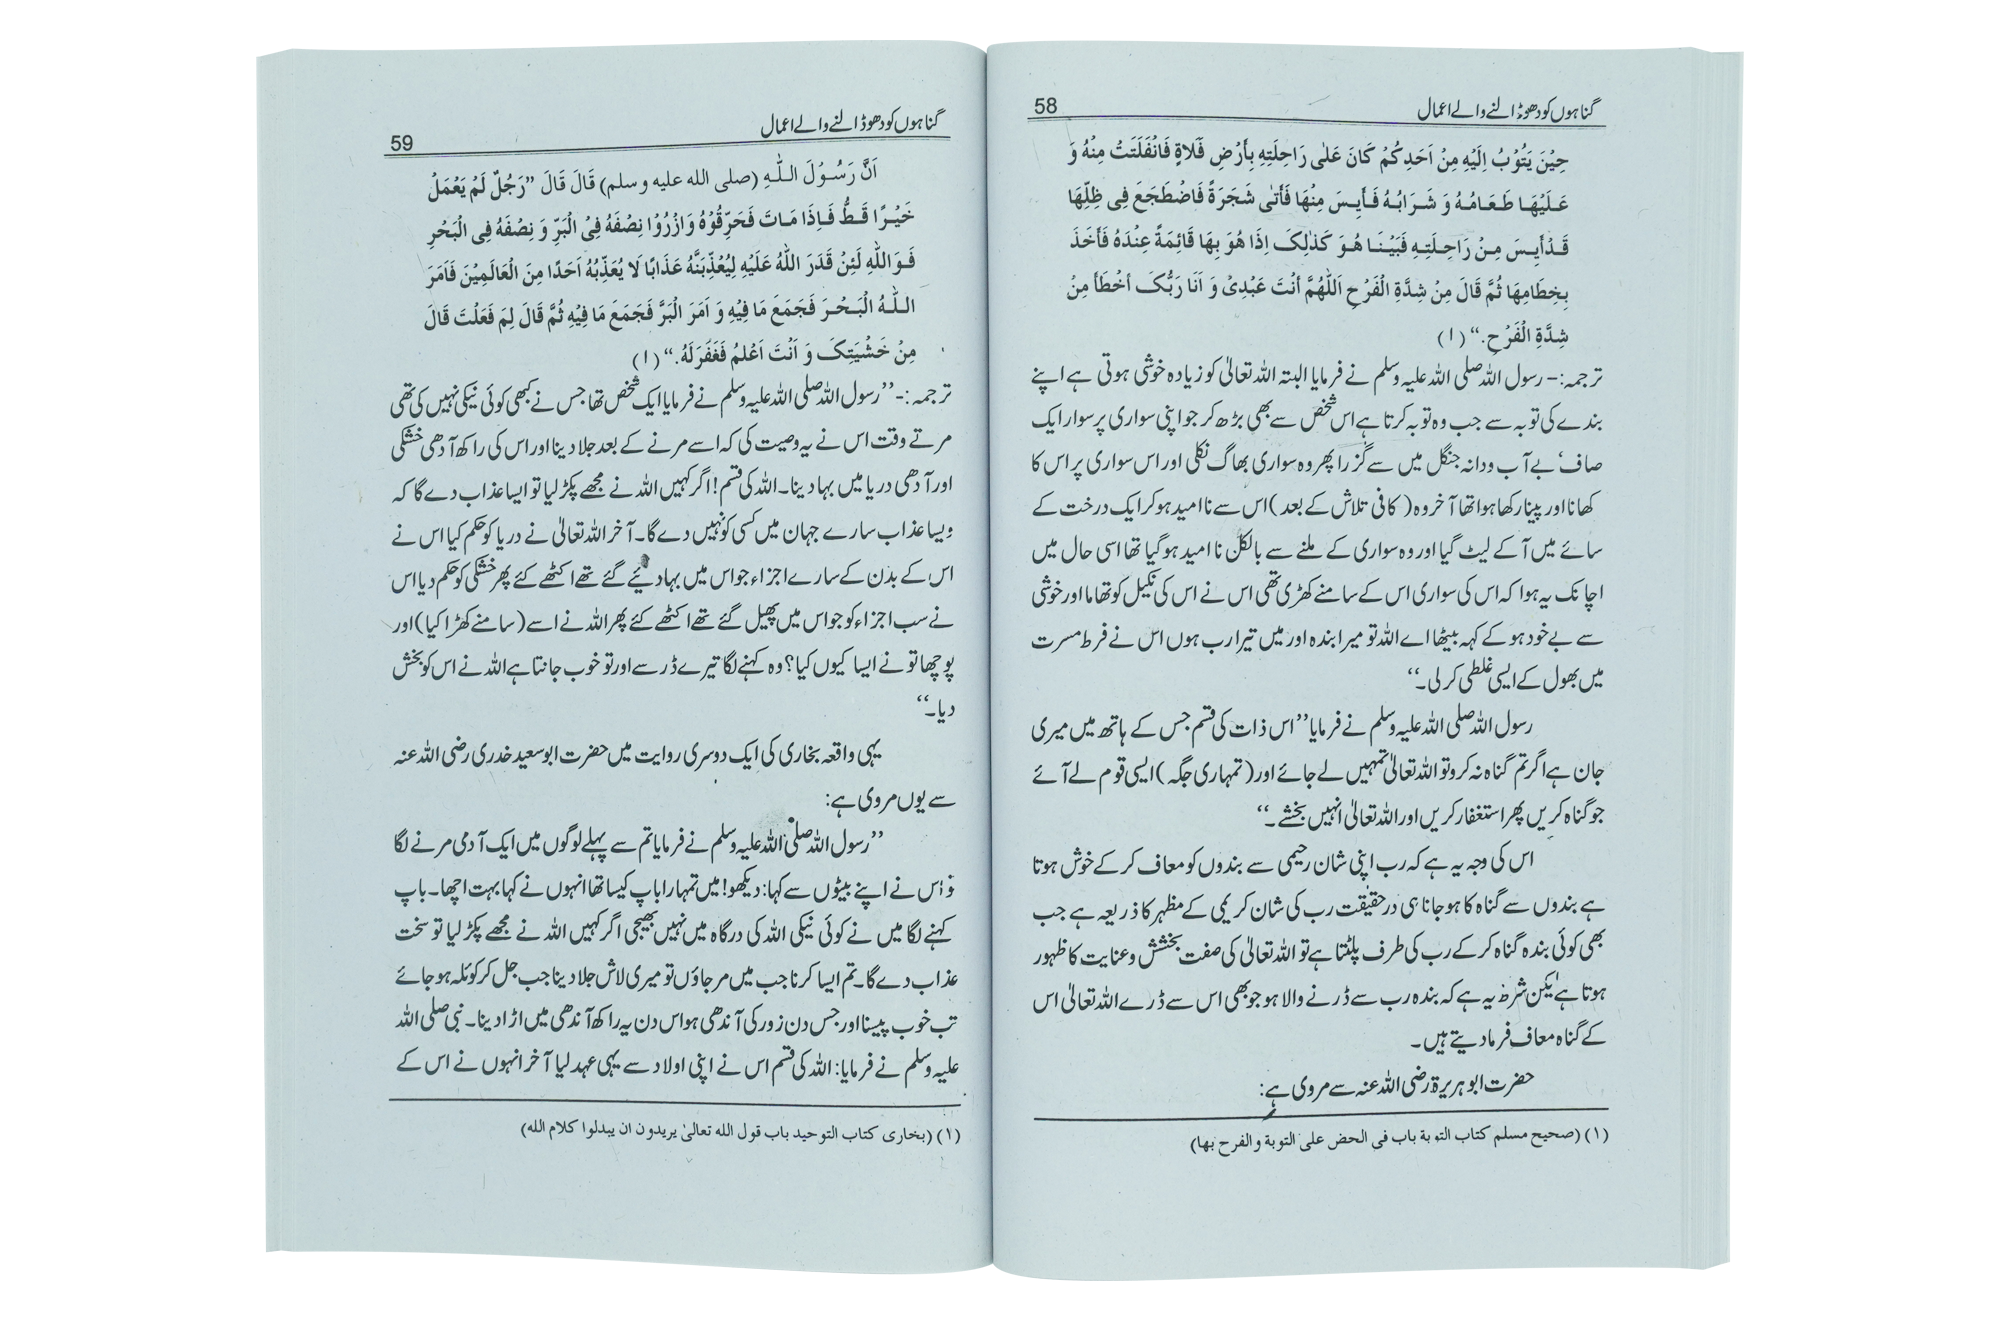 گناہوں کو دھو ڈالنے والے اعمال
58
حِيْنَ يَتُوْبُ اِلَيْهِ مِنْ اَحَدِكُمْ كَانَ عَلٰى رَاحِلَتِهٖ بِأَرْضٍ فَلَاةٍ فَانْفَلَتَتْ مِنْهُ وَ
عَلَيْهَا طَعَامُهُ وَ شَرَابُهُ فَأَيِسَ مِنْهَا فَأَتٰى شَجَرَةً فَاضْطَجَعَ فِى ظِلِّهَا
قَدْ أَيِسَ مِنْ رَاحِلَتِهٖ فَبَيْنَا هُوَ كَذٰلِكَ اِذَا هُوَ بِهَا قَائِمَةً عِنْدَهُ فَأَخَذَ
بِخِطَامِهَا ثُمَّ قَالَ مِنْ شِدَّةِ الْفَرْحِ اَللّٰهُمَّ أَنْتَ عَبْدِىْ وَ اَنَا رَبُّكَ أَخْطَأَ مِنْ
شِدَّةِ الْفَرْحِ.“ (١)
ترجمہ:- رسول اللہ صلی اللہ علیہ وسلم نے فرمایا البتہ اللہ تعالیٰ کو زیادہ خوشی ہوتی ہے اپنے
بندے کی توبہ سے جب وہ توبہ کرتا ہے اس شخص سے بھی بڑھ کر جو اپنی سواری پر سوار ایک
صاف، بے آب ودانہ جنگل میں سے گزرا پھر وہ سواری بھاگ نکلی اور اس سواری پر اس کا
کھانا اور پینا رکھا ہوا تھا آخر وہ (کافی تلاش کے بعد) اس سے نا امید ہو کر ایک درخت کے
سائے میں آ کے لیٹ گیا اور وہ سواری کے ملنے سے بالکل نا امید ہو گیا تھا اسی حال میں
اچانک یہ ہوا کہ اس کی سواری اس کے سامنے کھڑی تھی اس نے اس کی نکیل کو تھاما اور خوشی
سے بے خود ہو کے کہہ بیٹھا اے اللہ تو میرا بندہ اور میں تیرا رب ہوں اس نے فرط مسرت
میں بھول کے ایسی غلطی کر لی۔“
رسول اللہ صلی اللہ علیہ وسلم نے فرمایا ”اس ذات کی قسم جس کے ہاتھ میں میری
جان ہے اگر تم گناہ نہ کرو تو اللہ تعالیٰ تمہیں لے جائے اور (تمہاری جگہ) ایسی قوم لے آئے
جو گناہ کریں پھر استغفار کریں اور اللہ تعالیٰ انہیں بخشے۔“
اس کی وجہ یہ ہے کہ رب اپنی شان رحیمی سے بندوں کو معاف کر کے خوش ہوتا
ہے بندوں سے گناہ کا ہو جانا ہی درحقیقت رب کی شان کریمی کے مظہر کا ذریعہ ہے جب
بھی کوئی بندہ گناہ کر کے رب کی طرف پلٹتا ہے تو اللہ تعالیٰ کی صفت بخشش و عنایت کا ظہور
ہوتا ہے لیکن شرط یہ ہے کہ بندہ رب سے ڈرنے والا ہو جو بھی اس سے ڈرے اللہ تعالیٰ اس
کے گناہ معاف فرما دیتے ہیں۔
حضرت ابو ہریرۃ رضی اللہ عنہ سے مروی ہے:
(١) (صحیح مسلم کتاب التوبة باب فی الحض علی التوبة والفرح بها)
گناہوں کو دھو ڈالنے والے اعمال
59
اَنَّ رَسُوْلَ اللّٰهِ (صلى الله عليه وسلم) قَالَ قَالَ ”رَجُلٌ لَمْ يَعْمَلْ
خَيْرًا قَطُّ فَاِذَا مَاتَ فَحَرِّقُوْهُ وَاذْرُوْا نِصْفَهُ فِى الْبَرِّ وَ نِصْفَهُ فِى الْبَحْرِ
فَوَاللّٰهِ لَئِنْ قَدَرَ اللّٰهُ عَلَيْهِ لِيُعَذِّبَنَّهُ عَذَابًا لَا يُعَذِّبُهُ اَحَدًا مِنَ الْعَالَمِيْنَ فَاَمَرَ
اللّٰهُ الْبَحْرَ فَجَمَعَ مَا فِيْهِ وَ اَمَرَ الْبَرَّ فَجَمَعَ مَا فِيْهِ ثُمَّ قَالَ لِمَ فَعَلْتَ قَالَ
مِنْ خَشْيَتِكَ وَ اَنْتَ اَعْلَمُ فَغَفَرَلَهُ.“ (١)
ترجمہ:- ”رسول اللہ صلی اللہ علیہ وسلم نے فرمایا ایک شخص تھا جس نے کبھی کوئی نیکی نہیں کی تھی
مرتے وقت اس نے یہ وصیت کی کہ اسے مرنے کے بعد جلا دینا اور اس کی راکھ آدھی خشکی
اور آدھی دریا میں بہا دینا۔ اللہ کی قسم! اگر کہیں اللہ نے مجھے پکڑ لیا تو ایسا عذاب دے گا کہ
ویسا عذاب سارے جہان میں کسی کو نہیں دے گا۔ آخر اللہ تعالیٰ نے دریا کو حکم کیا اس نے
اس کے بدن کے سارے اجزاء جو اس میں بہا دیئے گئے تھے اکٹھے کئے پھر خشکی کو حکم دیا اس
نے سب اجزاء کو جو اس میں پھیل گئے تھے اکٹھے کئے پھر اللہ نے اسے (سامنے کھڑا کیا) اور
پوچھا تو نے ایسا کیوں کیا؟ وہ کہنے لگا تیرے ڈر سے اور تو خوب جانتا ہے اللہ نے اس کو بخش
دیا۔“
یہی واقعہ بخاری کی ایک دوسری روایت میں حضرت ابو سعید خدری رضی اللہ عنہ
سے یوں مروی ہے:
”رسول اللہ صلی اللہ علیہ وسلم نے فرمایا تم سے پہلے لوگوں میں ایک آدمی مرنے لگا
تو اس نے اپنے بیٹوں سے کہا: دیکھو! میں تمہارا باپ کیسا تھا انہوں نے کہا بہت اچھا۔ باپ
کہنے لگا میں نے کوئی نیکی اللہ کی درگاہ میں نہیں بھیجی اگر کہیں اللہ نے مجھے پکڑ لیا تو سخت
عذاب دے گا۔ تم ایسا کرنا جب میں مر جاؤں تو میری لاش جلا دینا جب جل کر کوئلہ ہو جائے
تب خوب پیسنا اور جس دن زور کی آندھی ہو اس دن یہ راکھ آندھی میں اڑا دینا۔ نبی صلی اللہ
علیہ وسلم نے فرمایا: اللہ کی قسم اس نے اپنی اولاد سے یہی عہد لیا آخر انہوں نے اس کے
(١) (بخاری کتاب التوحید باب قول الله تعالیٰ یریدون ان یبدلوا کلام الله)